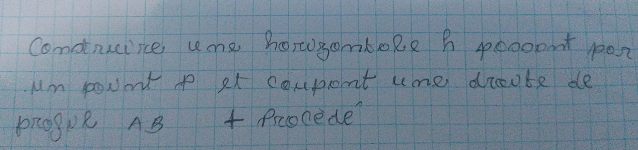 Construire une horizontale h passant par
un point P et coupant une droite de
profil AB + Procédé